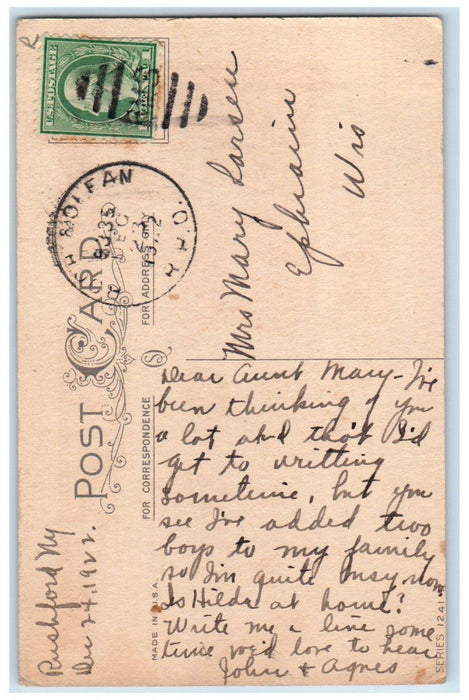 U.S. POSTAGE
POST CARD
FOR CORRESPONDENCE
FOR ADDRESS ONLY
MADE IN U.S.A.
SERIES 1241
& OLEAN
R.P.O.
DEC
23
1922
R.M.S.
Mrs Mary Larsen
Ephraim
Wis
Rushford Ny
Dec 24, 1922.
Dear Aunt Mary - I've
been thinking of you
a lot and that I'd
get to writting
sometime, but you
see I've added two
boys to my family
so I'm quite busy now
Is Hilda at home?
Write me a line some
time you'd love to hear
John + Agnes